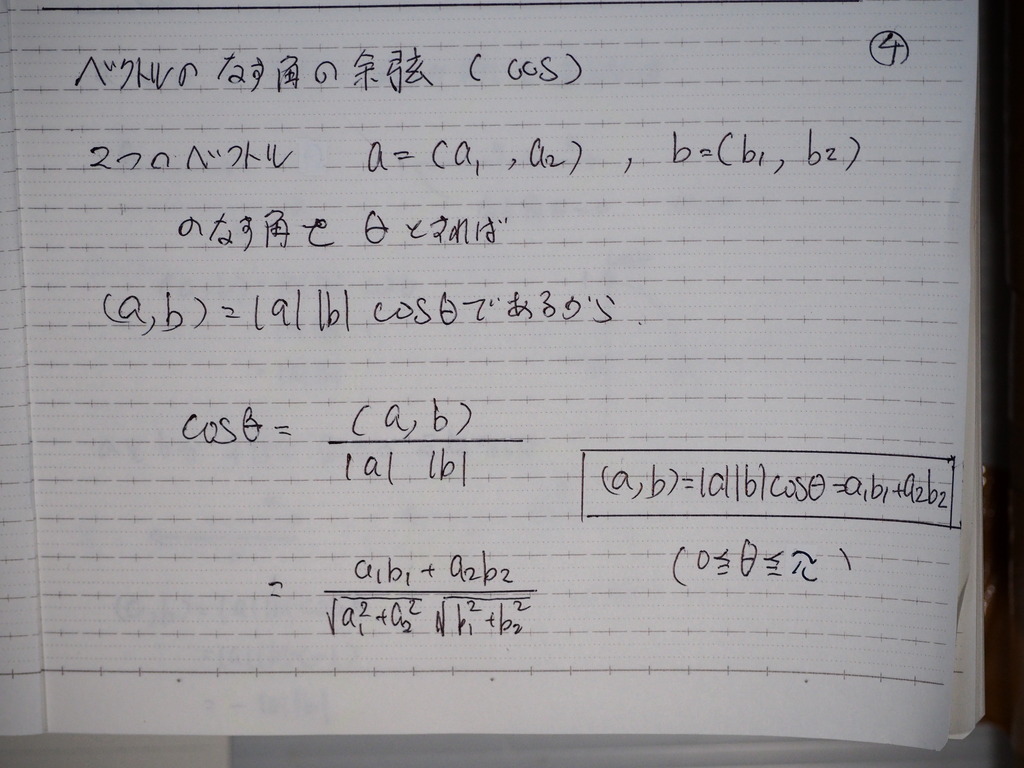 ④
ベクトルのなす角の余弦 (cos)
2つのベクトル a=(a₁, a₂), b=(b₁, b₂)
のなす角を θ とすれば
(a,b)=|a||b| cosθであるから.
cosθ = (a,b) / |a| |b|
(a,b)=|a||b|cosθ=a₁b₁+a₂b₂
= a₁b₁+a₂b₂ / √a₁²+a₂² √b₁²+b₂² (0≦θ≦π)